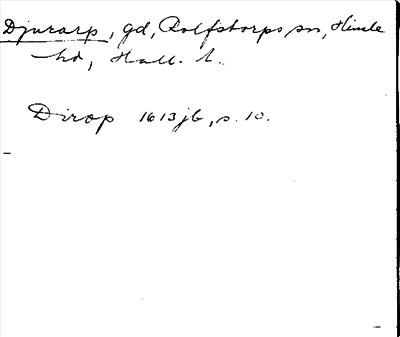 Djurarp, gd, Rolfstorps sn, Himle
hd, Hall. l.
Dirop 1613 jb, s. 10.